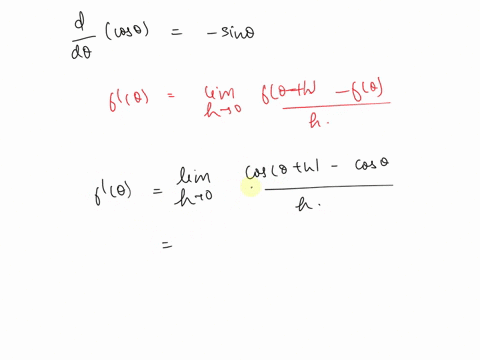 d/dθ (cosθ) = -sinθ
f'(θ) = lim h→0 f(θ+h) - f(θ) / h.
f'(θ) = lim h→0 cos(θ+h) - cosθ / h.
=